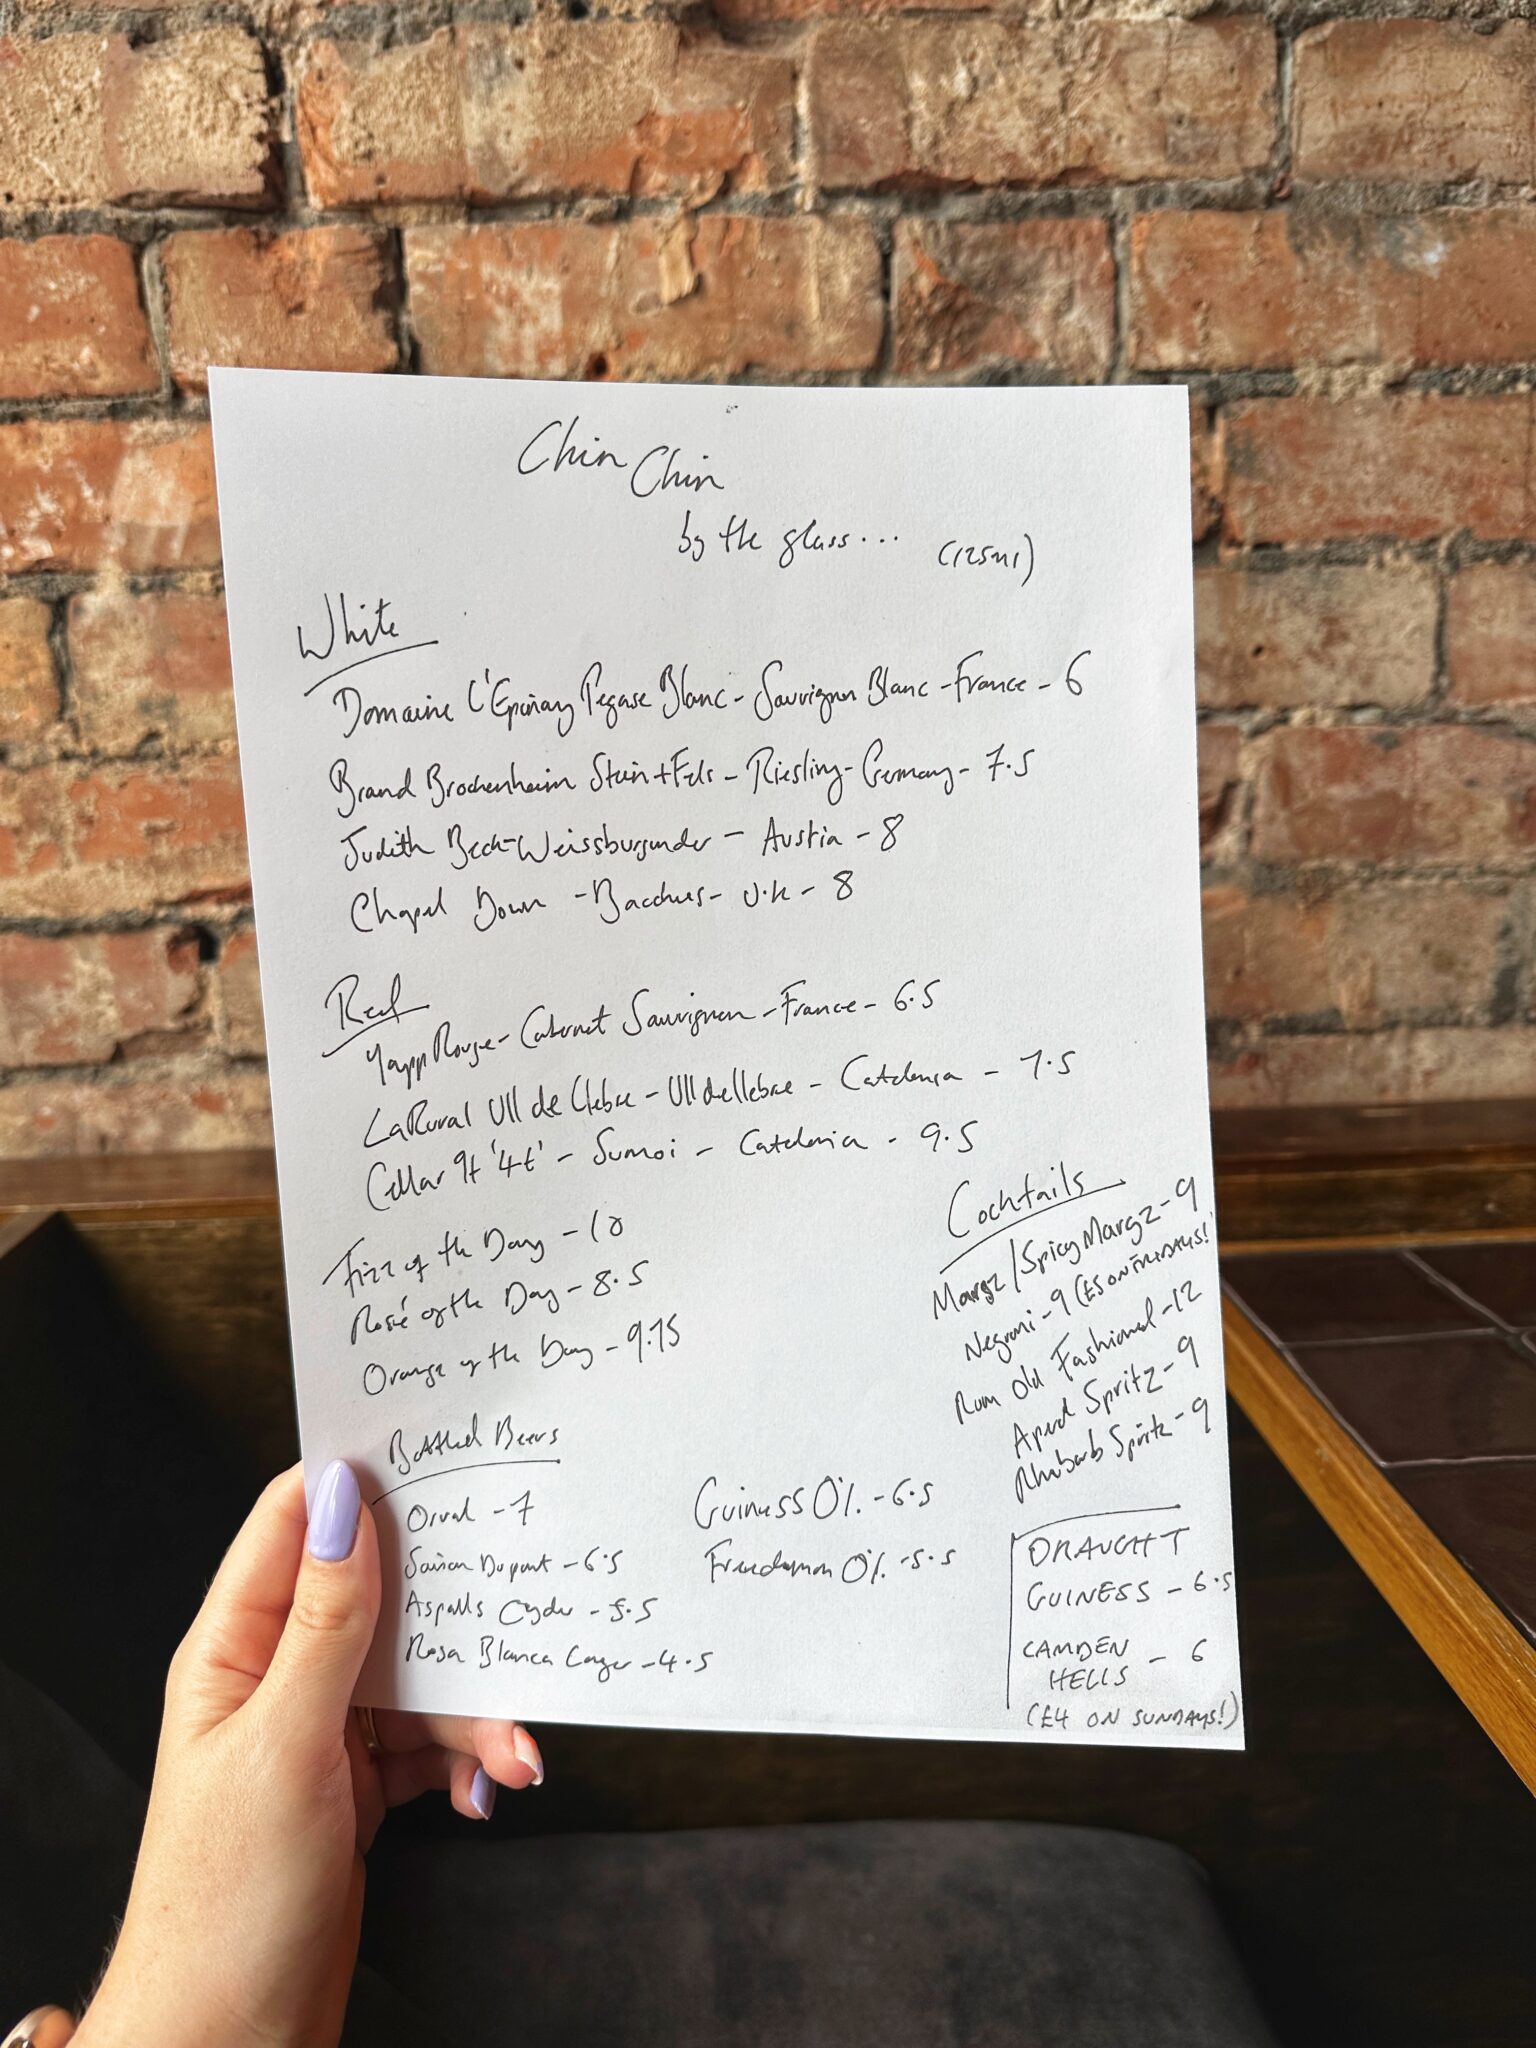 Chin Chin
by the glass... (125ml)
White
Domaine L'Epinay Pegase Blanc - Sauvignon Blanc - France - 6
Brand Brockenheim Stein + Fels - Riesling - Germany - 7.5
Judith Beck - Weissburgunder - Austria - 8
Chapel Down - Bacchus - U.K - 8
Red
Yapp Rouge - Cabernet Sauvignon - France - 6.5
LaRural Ull de Llebre - Ull de llebre - Catalonia - 7.5
Cellar 9+ '4t' - Sumoi - Catalonia - 9.5
Fizz of the Day - 10
Rosé of the Day - 8.5
Orange of the Day - 9.75
Cocktails
Margz / Spicy Margz - 9
Negroni - 9 (£5 ON FRIDAYS!)
Rum Old Fashioned - 12
Aperol Spritz - 9
Rhubarb Spritz - 9
Bottled Beers
Orval - 7
Saison Dupont - 6.5
Aspalls Cyder - 5.5
Rosa Blanca Lager - 4.5
Guiness 0% - 6.5
Freedamm 0% - 5.5
DRAUGHT
GUINESS - 6.5
CAMDEN HELLS - 6
(£4 ON SUNDAYS!)